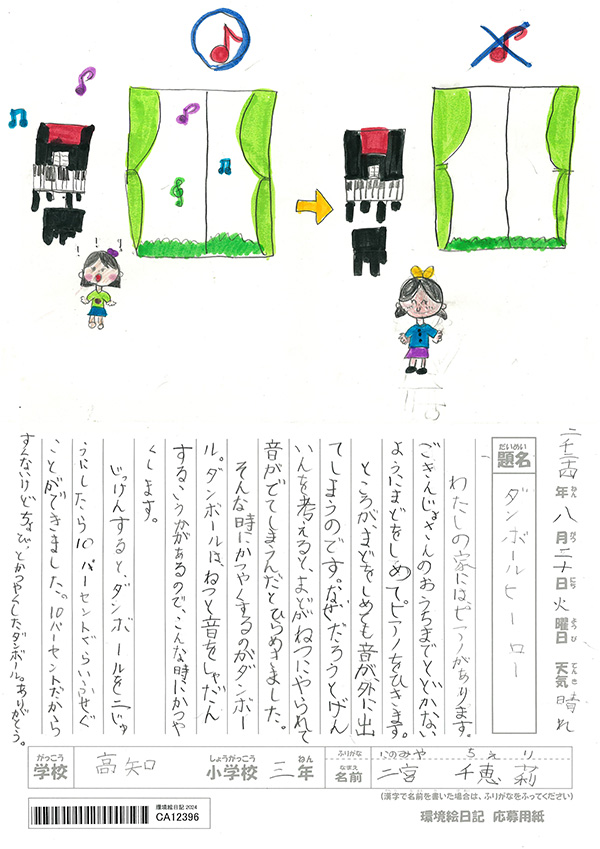 二千二十四年 八月二十日 火曜日 天気 晴れ
ねん がつ にち ようび てんき
だいめい
題名 ダンボールヒーロー
わたしの家にはピアノがあります。
ごきんじょさんのおうちまでとどかない
ようにまどをしめてピアノをひきます。
ところが、まどをしめても音が外に出
てしまうのです。なぜだろうとげん
いんを考えると、まどがねつにやられて
音がでてしまうんだとひらめきました。
そんな時にかつやくするのがダンボー
ル。ダンボールは、ねつと音をしゃだん
するこうかがあるので、こんな時にかつや
くします。
じっけんすると、ダンボールを二じゅ
うにしたら10パーセントぐらいふせぐ
ことができました。10パーセントだから
すくないけどちょびっとかつやくしたダンボール。ありがとう。
がっこう
学校 高知
しょうがっこう ねん
小学校 三年
ふりがな にのみや ちえり
なまえ
名前 二宮 千恵莉
(漢字で名前を書いた場合は、ふりがなをふってください)
環境絵日記 2024
CA12396
環境絵日記 応募用紙